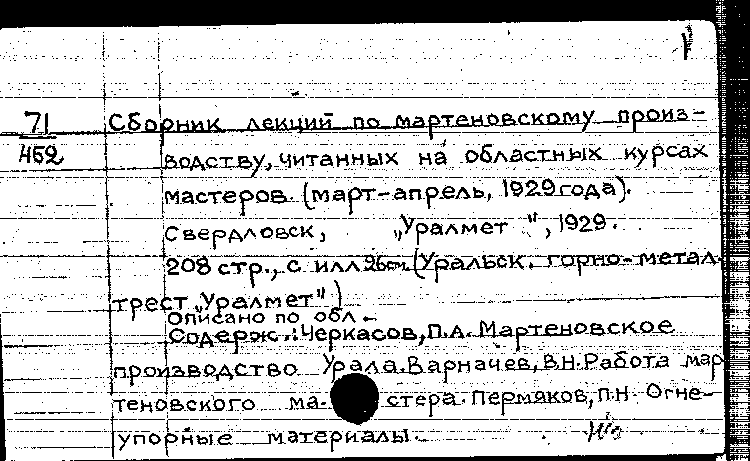 71
452
Сборник лекций по мартеновскому произ-
водству, читанных на областных курсах
мастеров. (март-апрель, 1929 года).
Свердловск, „Уралмет", 1929.
208 стр., с илл 26см. (Уральск. горно-метал.
трест „Уралмет")
Описано по обл.
Содерж.: Черкасов, П.А. Мартеновское
производство Урала. Варначев, В.Н. Работа мар
теновского ма- стера. Пермяков, П.Н. Огне-
упорные материалы.